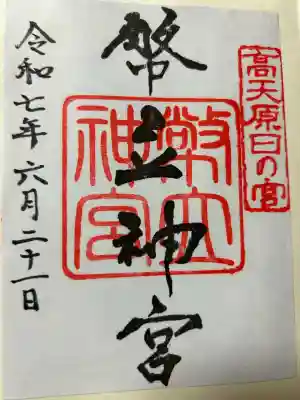 高天原日の宮
幣立神宮
幣立神宮
令和七年六月二十一日